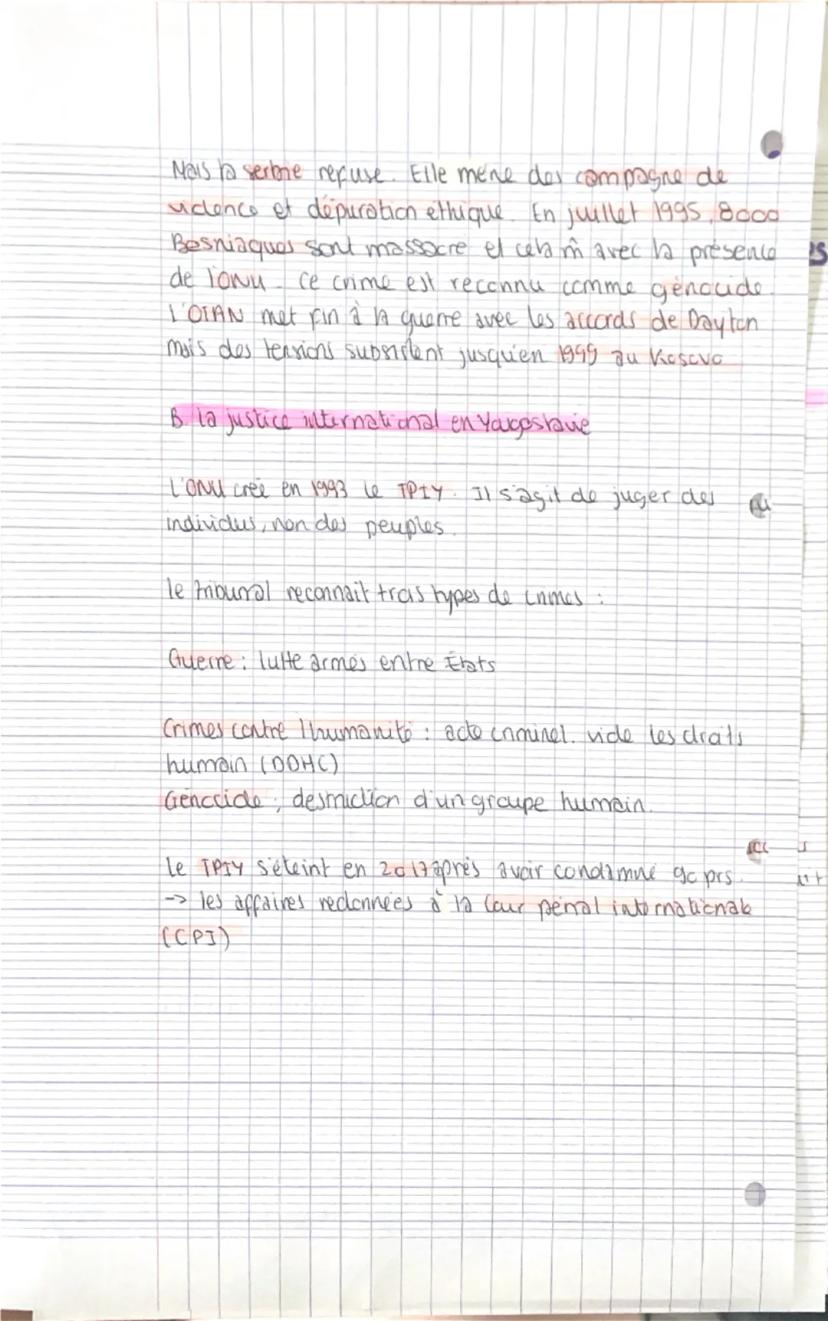 Mais la serbie refuse. Elle mène des compagne de
violence et d'épuration ethique. En juillet 1995, 8000
Bosniaques sont massacre et cela m̂ avec la présence
de l'ONU. Ce crime est reconnu comme génocide.
L'OTAN met fin à la guerre avec les accords de Dayton
mais des tensions subsistent jusqu'en 1999 au Kosovo
B. la justice international en Yougoslavie
L'ONU crée en 1993 le TPIY. Il s'agit de juger des
individus, non des peuples.
le tribunal reconnait trois types de crimes :
Guerre : lutte armés entre États
Crimes contre l'humanité : acte criminel. viole les droits
humain (DDHC)
Génocide ; destruction d'un groupe humain.
le TPIY s'éteint en 2017 après avoir condamné 90 prs.
-> les affaires redonnées à la Cour pénal internationale
(CPI)